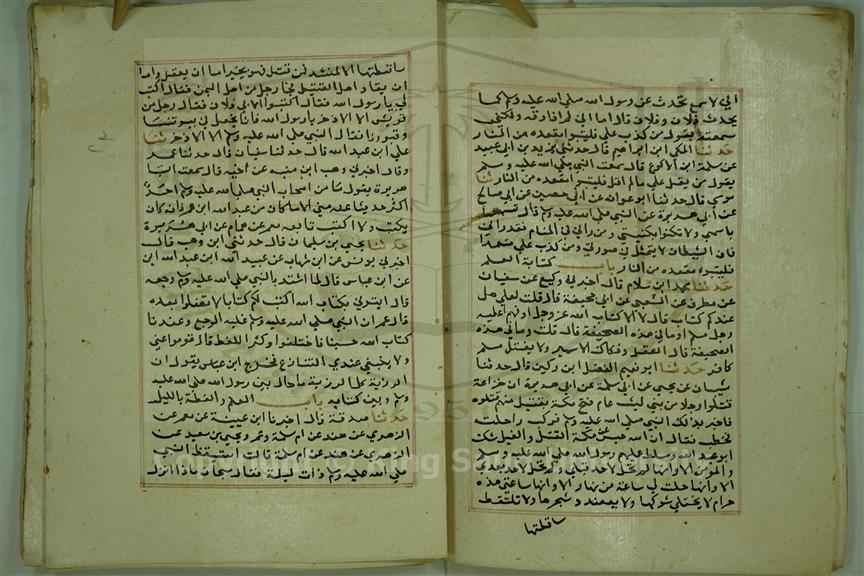 اني لا اسمعك تحدث عن رسول الله صلى الله عليه وسلم كما
يحدث فلان وفلان قال اما اني لم افارقه ولكني
سمعته يقول من كذب علي فليتبوا مقعده من النار
حدثنا المكي ابن ابراهيم قال حدثني يزيد بن ابي عبيد
عن سلمة ابن الاكوع قال سمعت النبي صلى الله عليه وسلم
يقول من يقل علي مالم اقل فليتبوا مقعده من النار ثنا
موسى قال حدثنا ابو عوانه عن ابي حصين عن ابي صالح
عن ابي هريرة عن النبي صلى الله عليه وسلم قال تسموا
باسمي ولا تكنوا بكنيتي ومن راني في المنام فقد راني
فان الشيطان لا يتمثل في صورتي ومن كذب علي متعمدا
فليتبوء مقعده من النار باب كتابة العلم
حدثنا محمد ابن سلام قال اخبرني وكيع عن سفيان
عن مطرف عن الشعبي عن ابي جحيفة قال قلت لعلي هل
عندكم كتاب قال لا الا كتاب الله عز وجل او فهم اعطيه
رجل مسلم او ما في هذه الصحيفة قال قلت وما في هذه
الصحيفة قال العقل وفكاك الاسير ولا يقتل مسلم
بكافر حدثنا ابو نعيم الفضل ابن دكين قال حدثنا
شيبان عن يحيى عن ابي سلمة عن ابي هريرة ان خزاعة
قتلوا رجلا من بني ليث عام فتح مكة بقتيل منهم قتلوه
فاخبر بذلك النبي صلى الله عليه وسلم فركب راحلته
فخطب فقال ان الله حبس عن مكة القتل والفيل شك
ابو عبد الله وسلط عليهم رسول الله صلى الله عليه وسلم
والمؤمنين الا وانها لم تحل لاحد قبلي ولم تحل لاحد بعدي
الا وانها حلت لي ساعة من نهار الا وانها ساعتي هذه
حرام لا يختلى شوكها ولا يعضد شجرها ولا تلتقط
ساقطتها
ساقطتها الا لمنشد فمن قتل فهو بخير اما ان يعقل واما
ان يقاد اهل القتيل فجا رجل من اهل اليمن فقال اكتب
لي يا رسول الله فقال اكتبوا لابي فلان فقال رجل من
قريش الا الاذخر يا رسول الله فانا نجعله في بيوتنا
وقبورنا فقال النبي صلى الله عليه وسلم الا الاذخر ثنا
علي ابن عبد الله قال حدثنا سفيان قال حدثنا عمر
وقال اخبرني وهب ابن منبه عن اخيه قال سمعت ابا
هريرة يقول ما من اصحاب النبي صلى الله عليه وسلم احد
اكثر حديثا عنه مني الا ما كان من عبد الله ابن عمر فانه كان
يكتب ولا اكتب تابعه معمر عن همام عن ابي هريرة
حدثنا يحيى بن سليمان قال حدثني ابن وهب قال
اخبرني يونس عن ابن شهاب عن عبيد الله ابن عبد الله ابن
عن ابن عباس قال لما اشتد بالنبي صلى الله عليه وسلم وجعه
قال ايتوني بكتاب اكتب لكم كتابا لا تضلوا بعده
قال عمر ان النبي صلى الله عليه وسلم غلبه الوجع وعندنا
كتاب الله حسبنا فاختلفوا وكثر اللغط قال قوموا عني
ولا ينبغي عندي التنازع فخرج ابن عباس يقول ان
الرزية كل الرزية ما حال بين رسول الله صلى الله عليه
وسلم وبين كتابه باب العلم والعظة بالليل
حدثنا صدقة قال اخبرنا ابن عيينة عن معمر عن
الزهري عن هند عن ام سلمة وعمر ويحيى بن سعيد عن
الزهري عن هند عن ام سلمة قالت استيقظ النبي
صلى الله عليه وسلم ذات ليلة فقال سبحان الله ماذا انزل